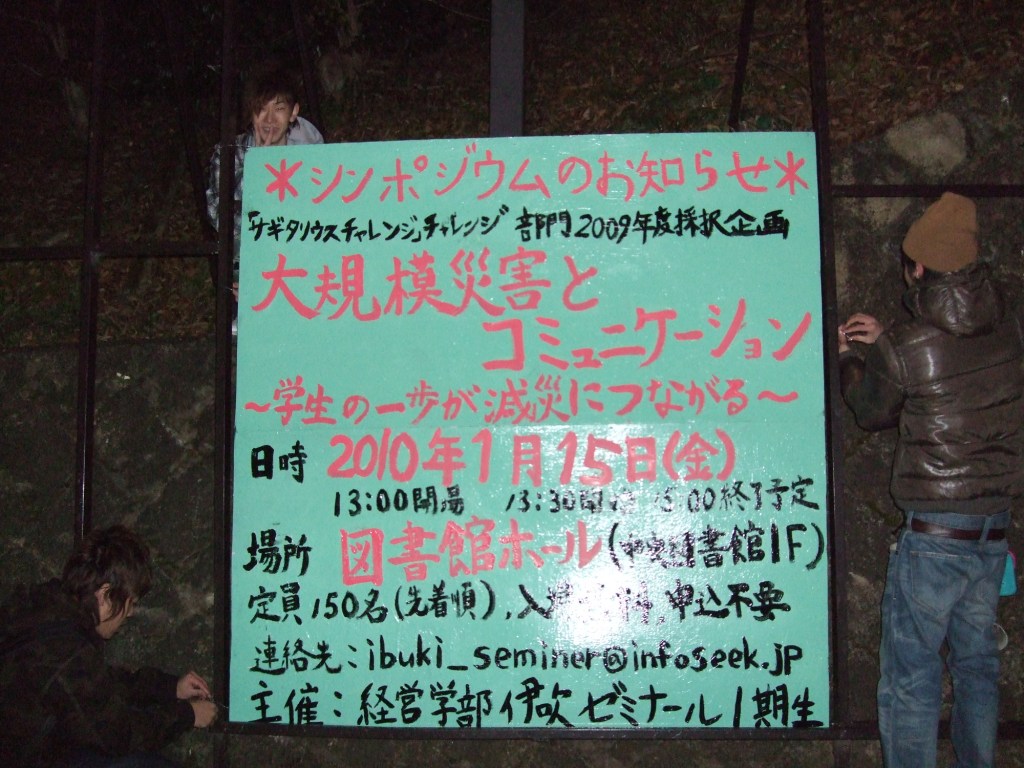 ＊シンポジウムのお知らせ＊
「サギタリウスチャレンジ」チャレンジ部門2009年度採択企画
大規模災害と
コミュニケーション
～学生の一歩が減災につながる～
日時 2010年1月15日(金)
13:00開場 13:30開 :00終了予定
場所 図書館ホール(中央図書館1F)
定員150名(先着順),入場 料,申込不要
連絡先:ibuki_seminer@infoseek.jp
主催:経営学部伊吹ゼミナール1期生